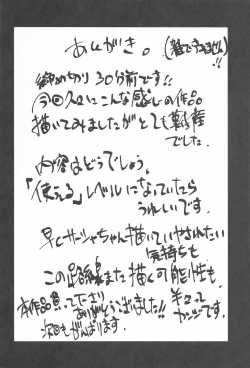 あとがき。(雑ですみません)!!
締め切り30分前です!!
今回久々にこんな感じの作品
描いてみましたがとても難産
でした
内容はどうでしょう。
「使える」レベルになっていたら
うれしいです。
早くサーシャちゃん描いていやされたい
気持ちも
この路線また描く可能性も
半々って
カンジです。
本作品買って下さり
ありがとうございました!!
次回もがんばります。